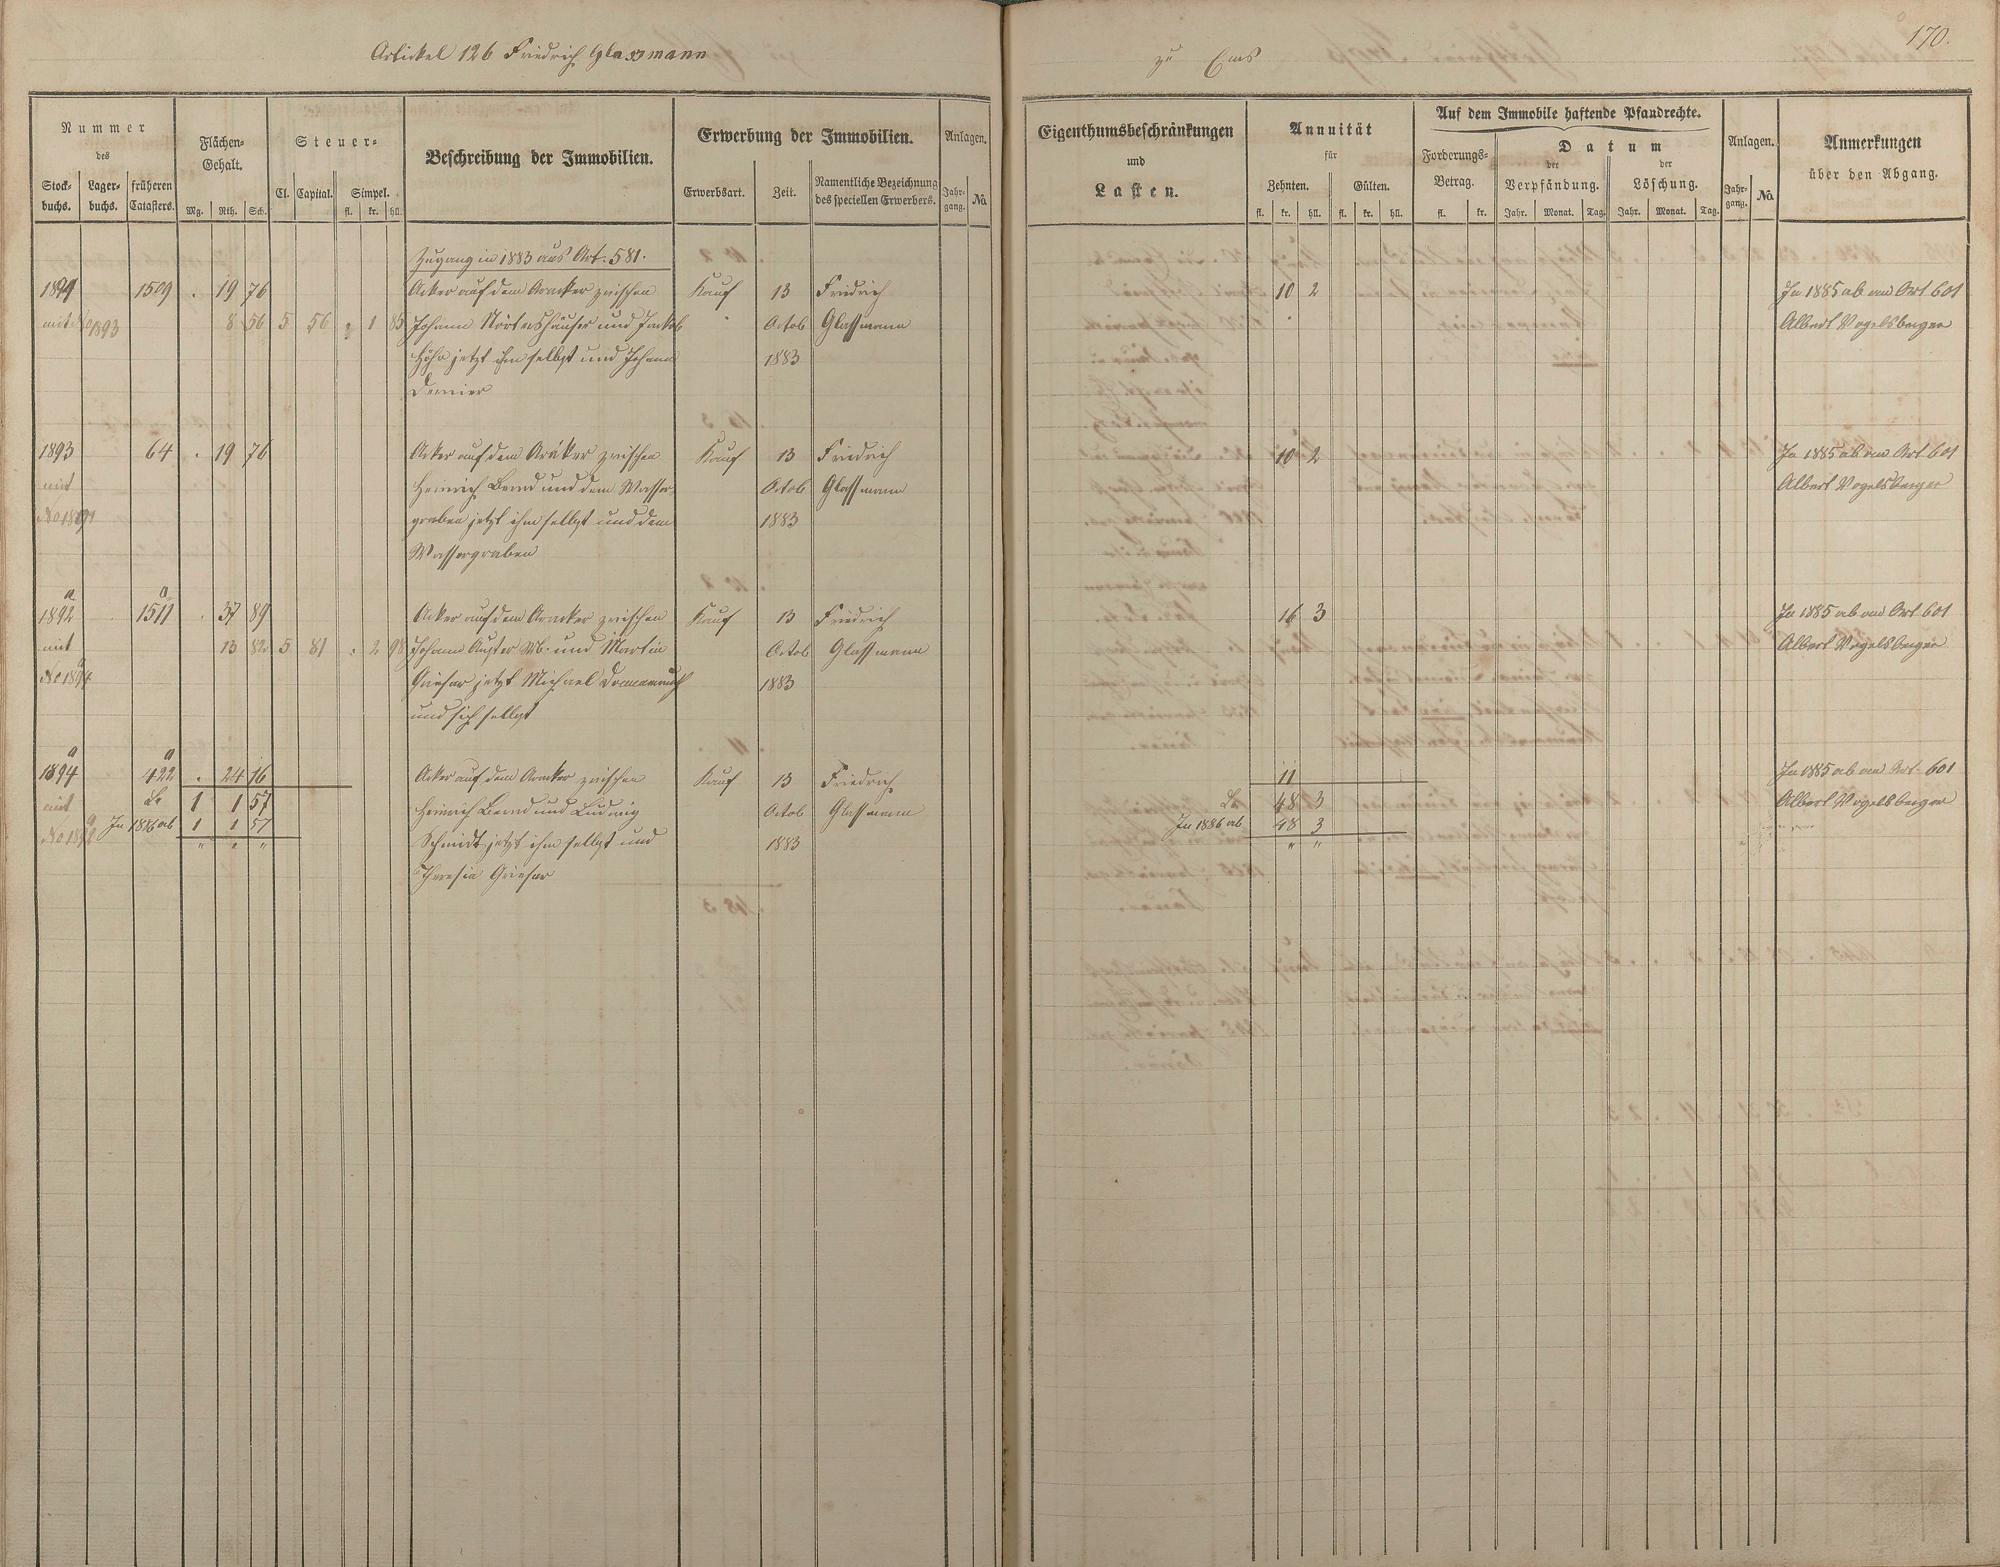 Artickel 126 Friedrich Glassmann
zu Ems
170.
Nummer
des
Stock-
buchs.
Lager-
buchs.
früheren
Catasters.
Flächen-
Gehalt.
Mg. Rth. Sch.
Steuer-
Cl. Capital. Simpel.
fl. kr. hll.
Beschreibung der Immobilien.
Erwerbung der Immobilien.
Erwerbsart. Zeit.
Namentliche Bezeichnung
des speciellen Erwerbers.
Anlagen.
Jahr-
gang. No.
Eigenthumsbeschränkungen
und
Lasten.
Annuität
für
Zehnten. Gülten.
fl. kr. hll. fl. kr. hll.
Auf dem Immobile haftende Pfandrechte.
Forderungs-
Betrag.
fl. kr.
Datum
der
Verpfändung.
der
Löschung.
Jahr. Monat. Tag. Jahr. Monat. Tag.
Anlagen.
Jahr-
gang. No.
Anmerkungen
über den Abgang.
Zugang in 1883 aus Art. 581.
1509 . 19 76 Acker auf dem zwischen Kauf 13 Friedrich 10 2 In 1885 ab an Art 601
mit No 1893 8 56 5 56 1 85 Johann und Jakob Octob Glassmann Albert Vogelsberger
jetzt ihm selbst und Johann 1883
1893 64 . 19 76 Acker auf dem zwischen Kauf 13 Friedrich 10 2 In 1885 ab an Art 601
mit Heinrich und dem Wasser- Octob Glassmann Albert Vogelsberger
graben jetzt ihm selbst und dem 1883
Wassergraben
a a
1892 1511 . 37 89 Acker auf dem zwischen Kauf 13 Friedrich 16 3 In 1885 ab an Art 601
mit 13 82 5 81 . 2 98 Johann und Martin Octob Glassmann Albert Vogelsberger
No 1894 jetzt Michael 1883
und sich selbst
a a
1894 422 . 24 16 Acker auf dem zwischen Kauf 13 Friedrich 11 In 1885 ab an Art. 601
mit 1 1 57 Heinrich und Ludwig Octob Glassmann 48 3 Albert Vogelsberger
In 1886 ab 1 1 57 Schmidt jetzt ihm selbst und 1883 In 1886 ab 48 3
" " " " "
Theresia